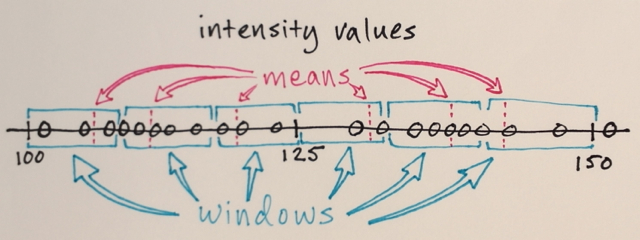 intensity values
means
100 125 150
windows